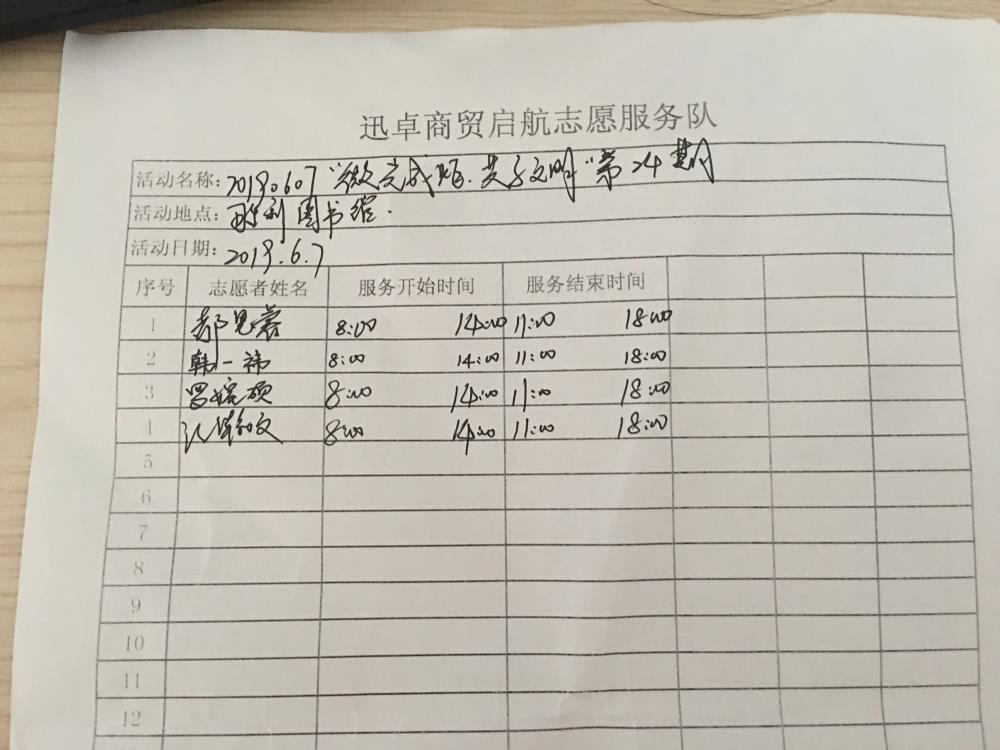 迅卓商贸启航志愿服务队
活动名称: 20190607 "微完成炬.共予文明"第24期
活动地点: 胜利图书馆.
活动日期: 2019.6.7
序号 志愿者姓名 服务开始时间 服务结束时间
1 8:00 14:00 11:00 18:00
2 韩一祎 8:00 14:00 11:00 18:00
3 8:00 14:00 11:00 18:00
4 8:00 14:00 11:00 18:00
5
6
7
8
9
10
11
12